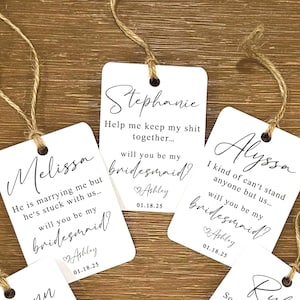 Stephanie
Help me keep my shit
together...
will you be my
bridesmaid?
Ashley
01.18.25
Melissa
He is marrying me but
he's stuck with us...
will you be my
bridesmaid?
Ashley
01.18.25
Alyssa
I kind of can't stand
anyone but us...
will you be my
bridesmaid?
Ashley
01.18.25